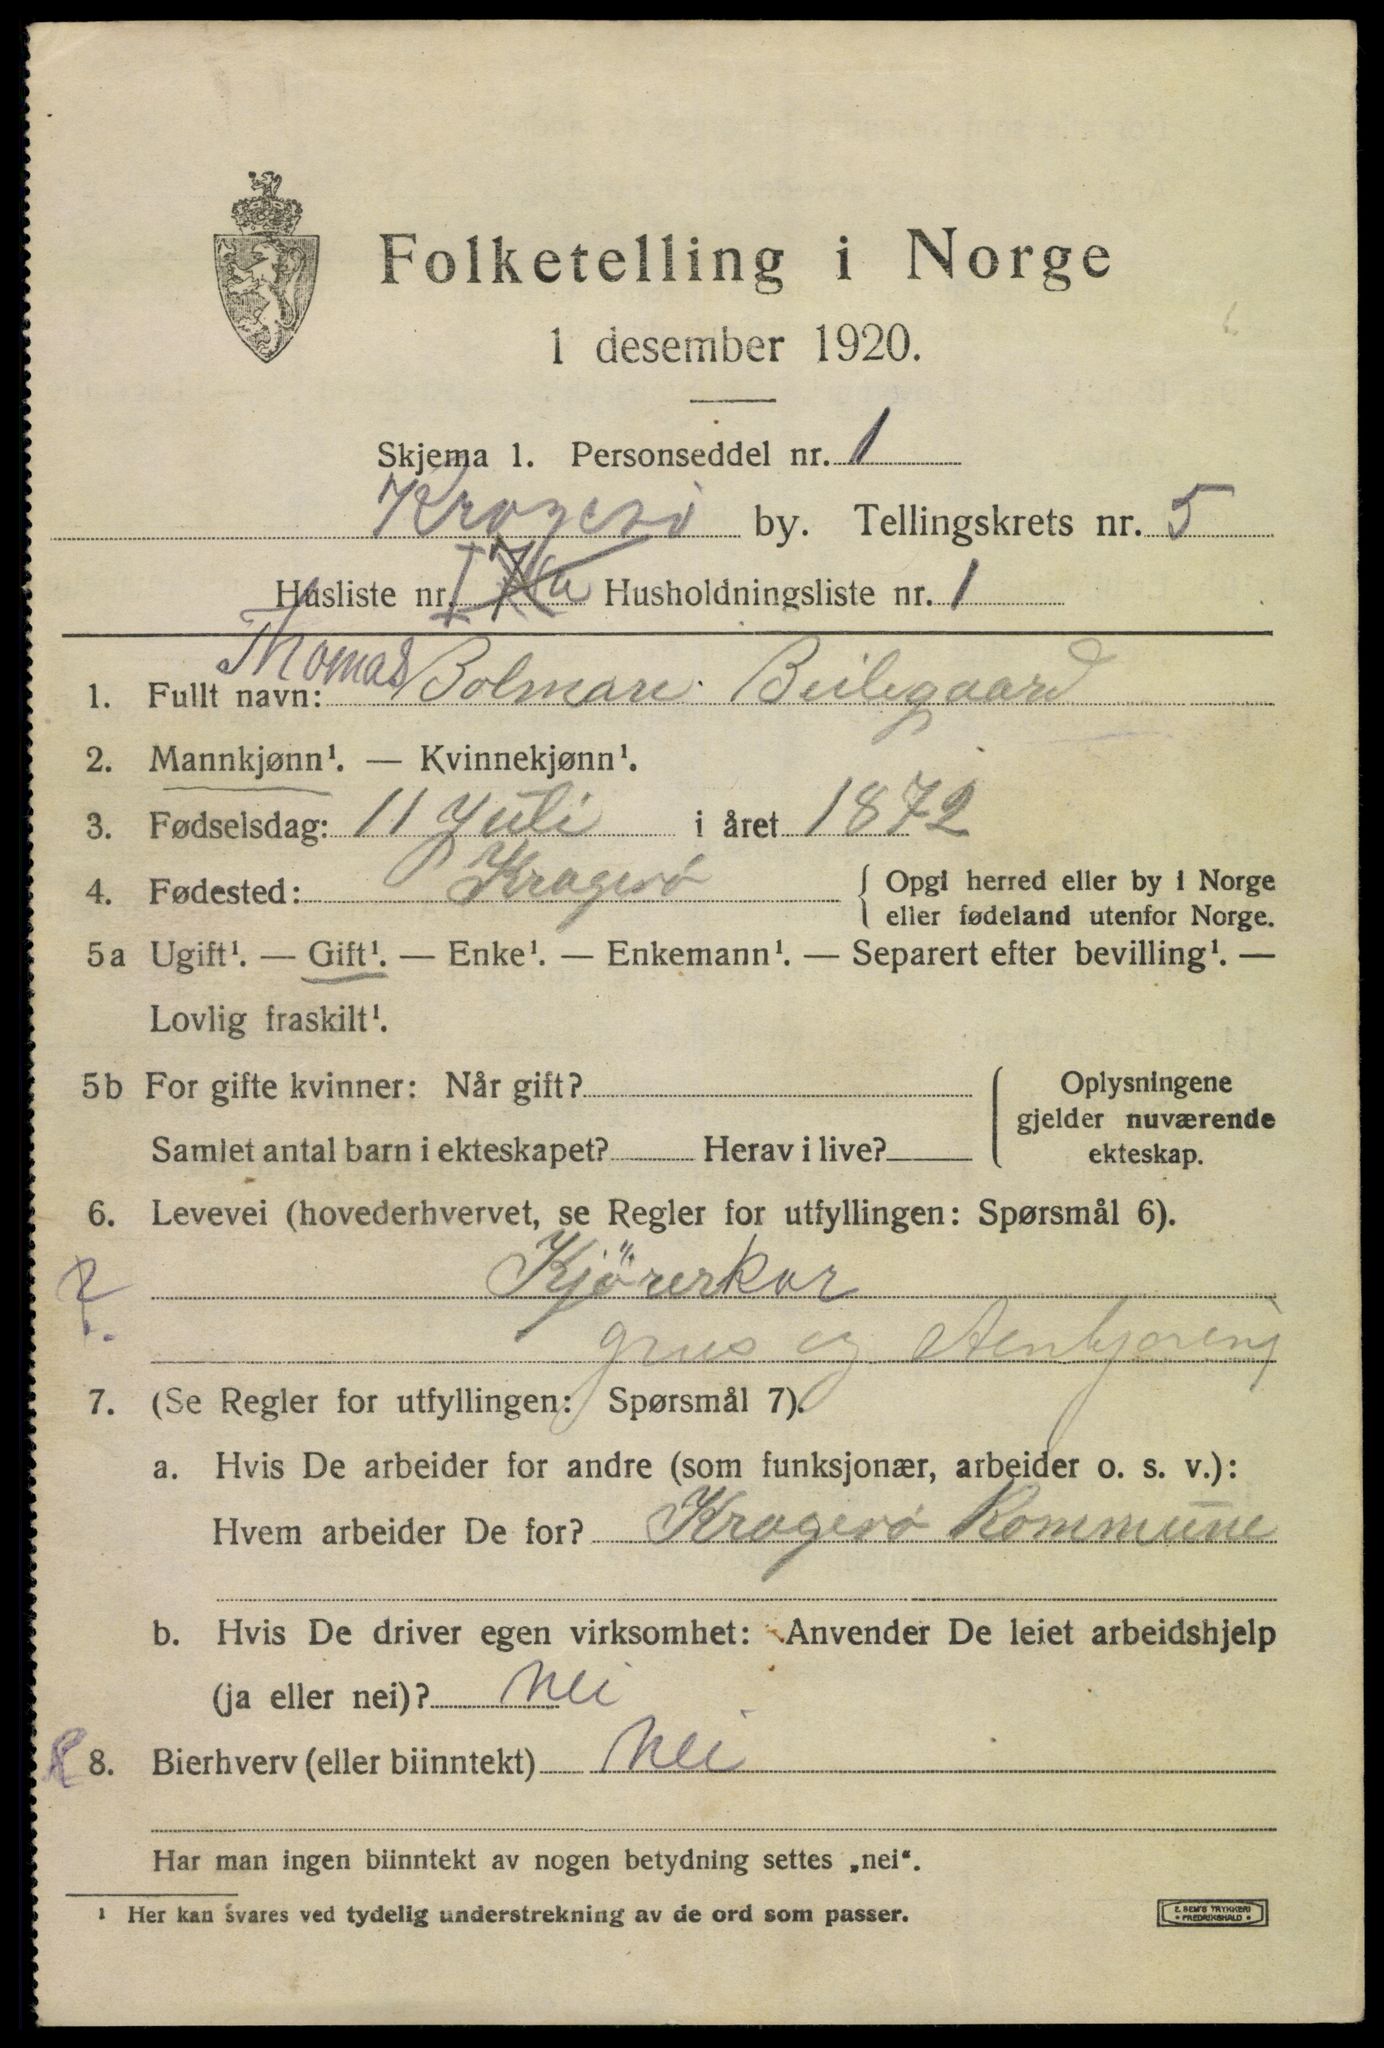 Folketelling i Norge
1 desember 1920.
Skjema 1. Personseddel nr. 1
Kragerö by. Tellingskrets nr. 5
Husliste nr. Husholdningsliste nr. 1
Thomas
1. Fullt navn: Bolmare Beilegaard
2. Mannkjønn¹. — Kvinnekjønn¹.
3. Fødselsdag: 11 Juli i året 1872
4. Fødested: Kragerö { Opgi herred eller by i Norge
eller fødeland utenfor Norge.
5a Ugift¹. — Gift¹. — Enke¹. — Enkemann¹. — Separert efter bevilling¹. —
Lovlig fraskilt¹.
5b For gifte kvinner: Når gift? { Oplysningene
gjelder nuværende
Samlet antal barn i ekteskapet? Herav i live? ekteskap.
6. Levevei (hovederhvervet, se Regler for utfyllingen: Spørsmål 6).
Kjörerkar
grus og stenkjøring
7. (Se Regler for utfyllingen: Spørsmål 7).
a. Hvis De arbeider for andre (som funksjonær, arbeider o. s. v.):
Hvem arbeider De for? Kragerö Kommune
b. Hvis De driver egen virksomhet: Anvender De leiet arbeidshjelp
(ja eller nei)? Nei
8. Bierhverv (eller biinntekt) Nei
Har man ingen biinntekt av nogen betydning settes „nei“.
¹ Her kan svares ved tydelig understrekning av de ord som passer.
E. SEM'S TRYKKERI
• FREDRIKSHALD •